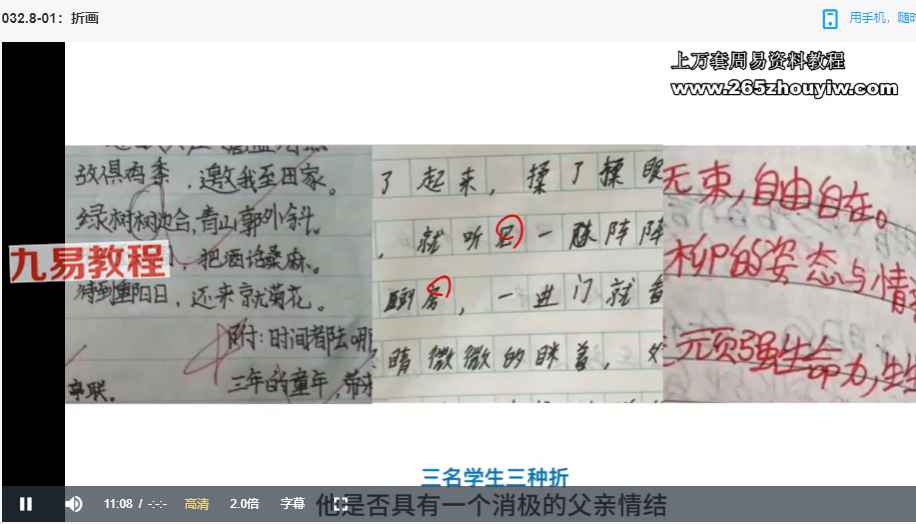 032.8-01：折画
用手机，随时
上万套周易资料教程
www.265zhouyiw.com
放俱鸡黍，邀我至田家。
绿树村边合，青山郭外斜。
九易教程
，把酒话桑麻。
待到重阳日，还来就菊花。
附：时间都去哪
三年的童年，带来
了起来，揉了揉眼
，就听见一
阵阵
厨房，一进门就看
睛微微的眯着，
无束，自由自在。
柳的姿态与情
顽强生命力，生
三名学生三种折
11:08 / -:-:-
高清
2.0倍
字幕
他是否具有一个消极的父亲情结